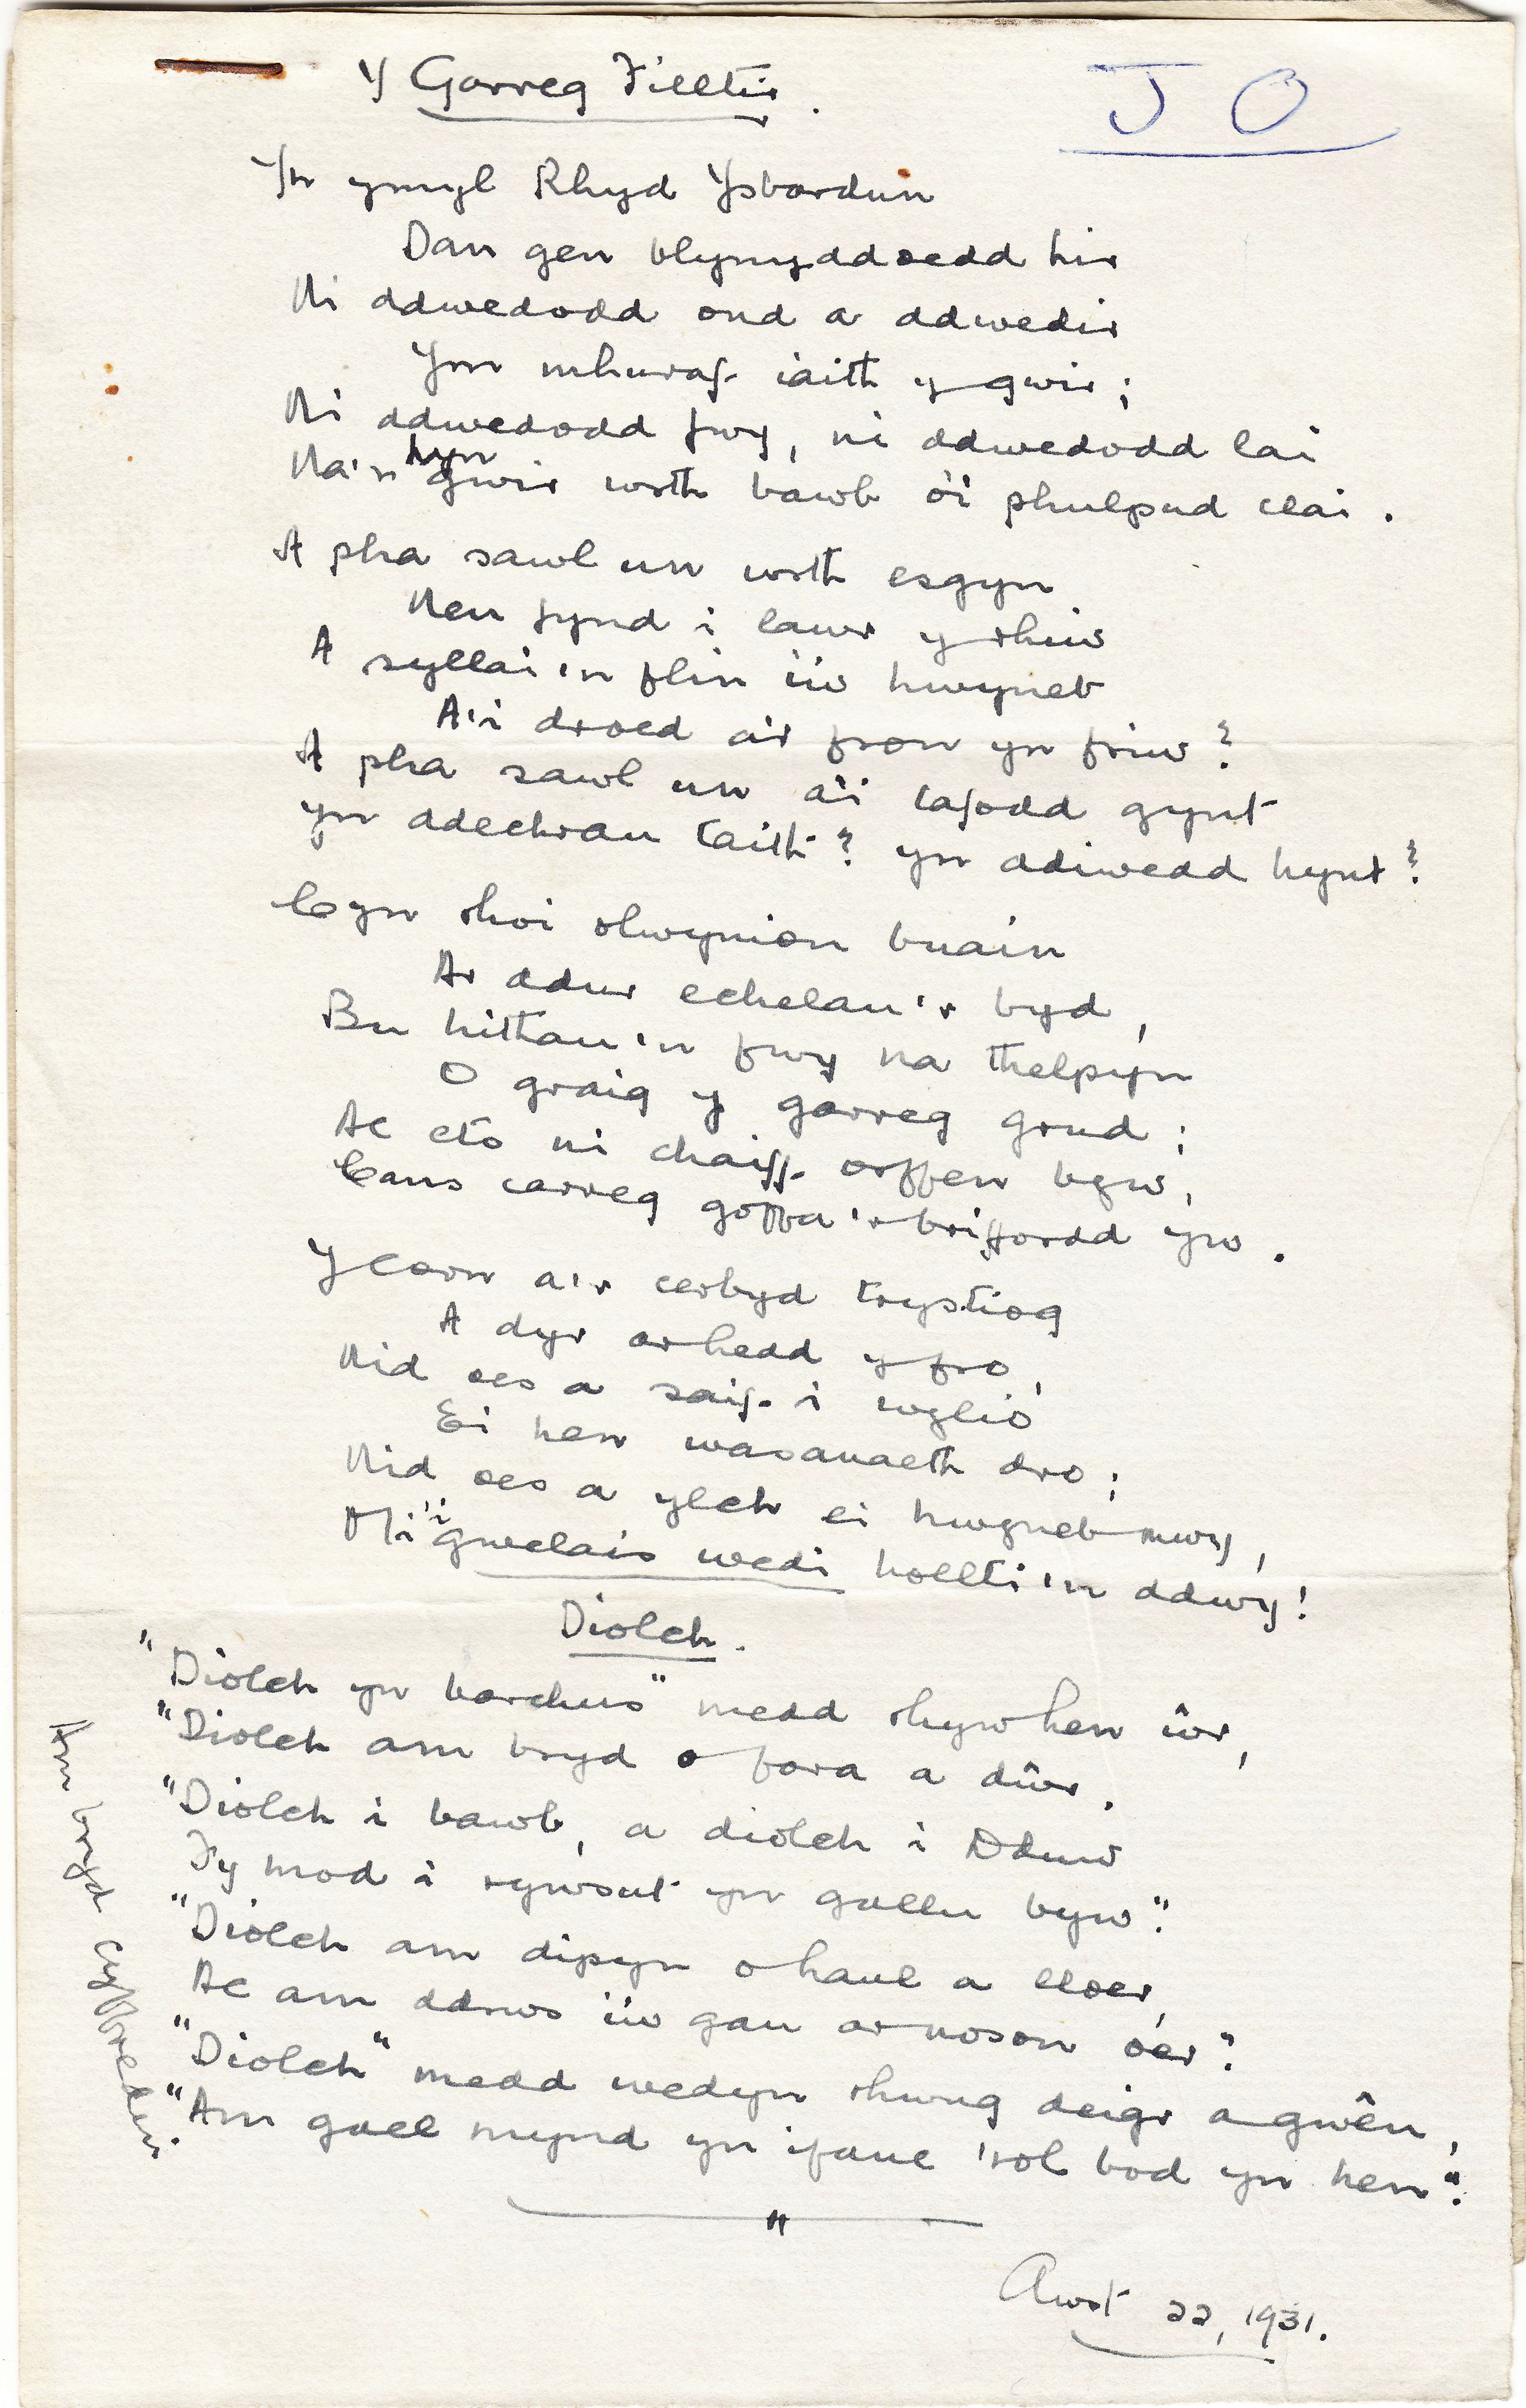 Y Garreg Filltir.
J O
Yn ymyl Rhyd Ysbardun
Dan gen blynyddoedd hir
Ni ddwedodd ond a ddwedir
Ym mhuraf iaith y gwir;
Ni ddwedodd fwy, ni ddwedodd lai
Na'n hyn gwir wrth bawb o'i phulpud clai.
A pha sawl un wrth esgyn
Neu fynd i lawr y rhiw
A syllai'n flin i'w hwyneb
A'i droed a'i fron yn friw?
A pha sawl un a'i cafodd gynt
Yn ddechrau taith? yn ddiwedd hynt?
Cyn rhoi olwynion buain
Ar ddur echelau'r byd,
Bu hithau'n fwy na thelpyn
O graig y garreg grud;
Ac eto ni chaiff orffen byw,
Cans carreg goffa'r briffordd yw.
Y corn a'r cerbyd trystiog
A dyr ar hedd y fro,
Nid oes a saif i wylio
Ei hen wasanaeth dro;
Nid oes a ylch ei hwyneb mwy,
Mi'i gwelais wedi hollti'n ddwy!
Diolch.
"Diolch yn barchus" medd rhyw hen ŵr,
"Diolch am bryd o fara a dŵr,
"Diolch i bawb, a diolch i Dduw
Fy mod i rywsut yn gallu byw".
"Diolch am dipyn o haul a lloer,
Ac am ddrws i'w gau ar noson oer".
"Diolch" medd wedyn rhwng deigr a gwên,
"Am gael mynd yn ifanc 'rol bod yn hen".
"
Awst 22, 1931.